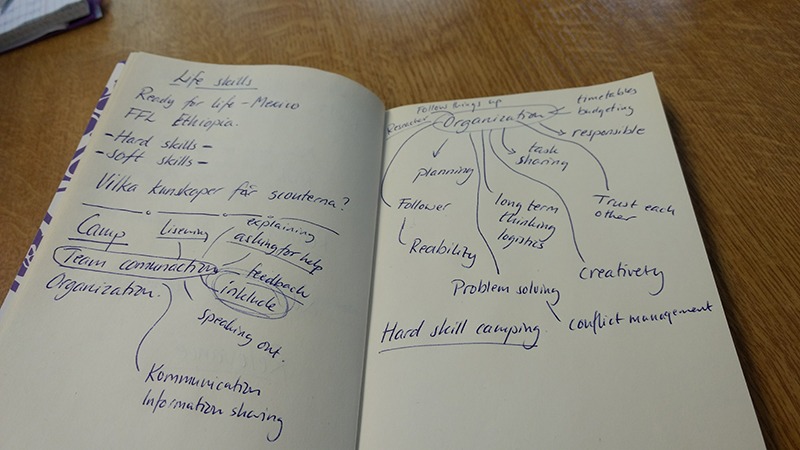 Life skills
Ready for life - Mexico
FFL Ethiopia.
- Hard skills -
- Soft skills -
Vilka kunskaper får scouterna?
Camp
Lisening
explaining
asking for help
Team comunaction
feedback
inklude
Organization.
speaking out.
Kommunication
Information sharing
Follow things up
Organization
timetables
budgeting
responsible
planning
task
sharing
Follower
long term
thinking
logistics
Trust each
other
Reability
Problem solving
creativery
conflict management
Hard skill camping